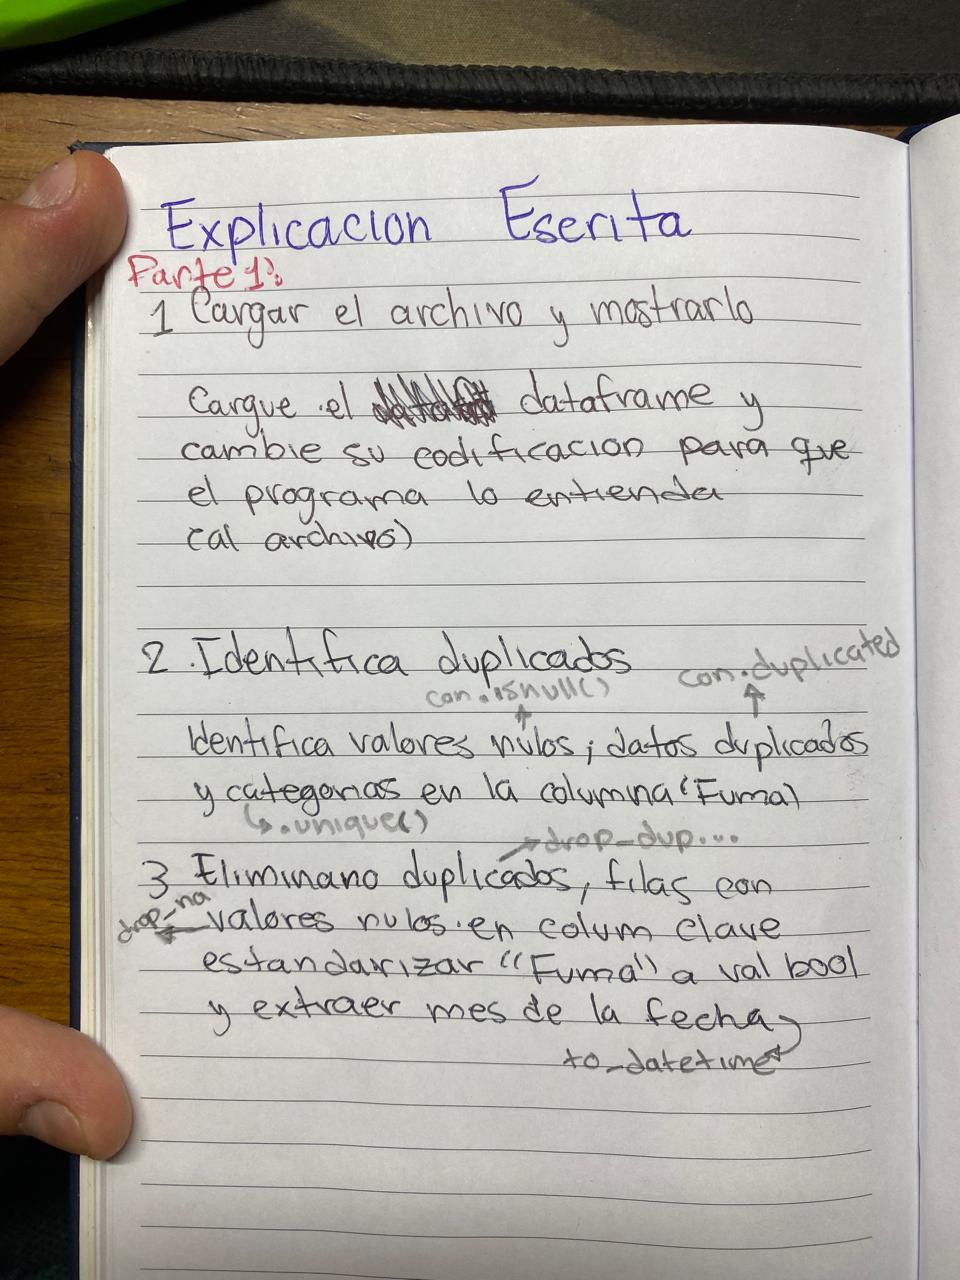 Explicacion Escrita
Parte 1:
1 Cargar el archivo y mostrarlo
Cargue el dataframe y
cambie su codificacion para que
el programa lo entienda
(al archivo)
2. Identifica duplicados
con.isnull() con.duplicated
Identifica valores nulos; datos duplicados
y categorias en la columna (Fuma)
.unique()
drop_dup...
3 Eliminano duplicados, filas con
drop_na valores nulos en colum clave
estandarizar "Fuma" a val bool
y extraer mes de la fecha
to_datetime